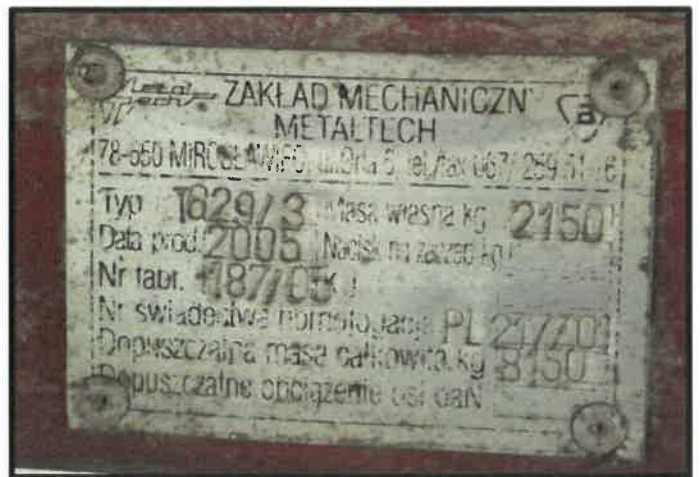 ZAKŁAD MECHANICZNY
METALTECH
78-650 MIROSŁAWIEC, tel./fax 067/ 259 51
Typ T629/3 Masa własna kg 2150
Data prod. 2005 Nacisk na zaczep kg
Nr fabr. 187/05
Nr świadectwa homologacji PL
Dopuszczalna masa całkowita kg 8150
Dopuszczalne obciążenie osi daN